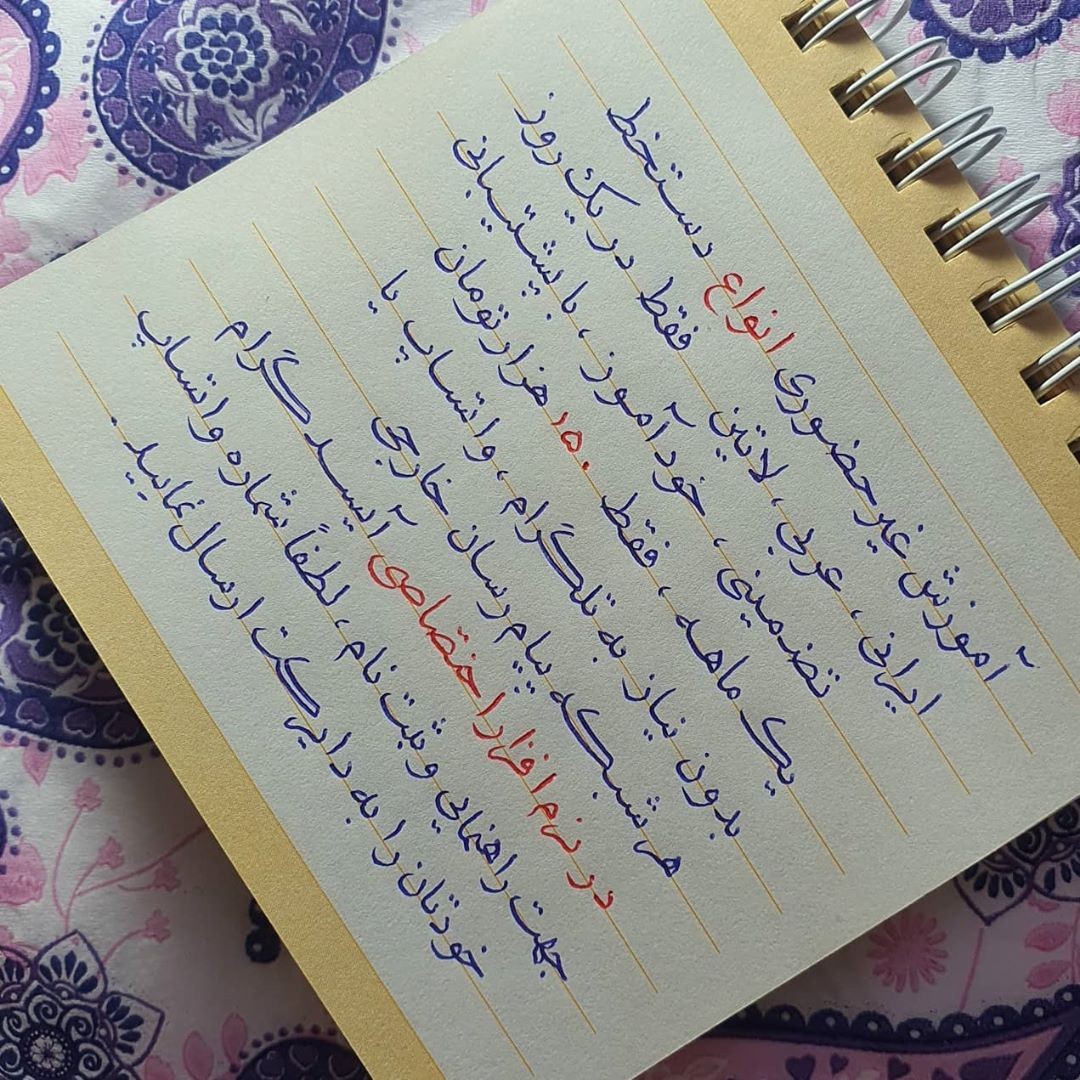 آموزش غیر حضوری انواع دستخط
ایرانی، عربی، لاتین فقط در یک روز
تضمینی، خودآموز، با پشتیبانی
یک ماهه، فقط ۱۵۰ هزار تومان
بدون نیاز به تلگرام، واتساپ یا
هر شبکه پیام رسان خارجی
در نرم افزار اختصاصی آیسد گرام
جهت راهنمایی و ثبت نام، لطفاً شماره واتساپ
خودتان را به دایرکت ارسال نمایید.